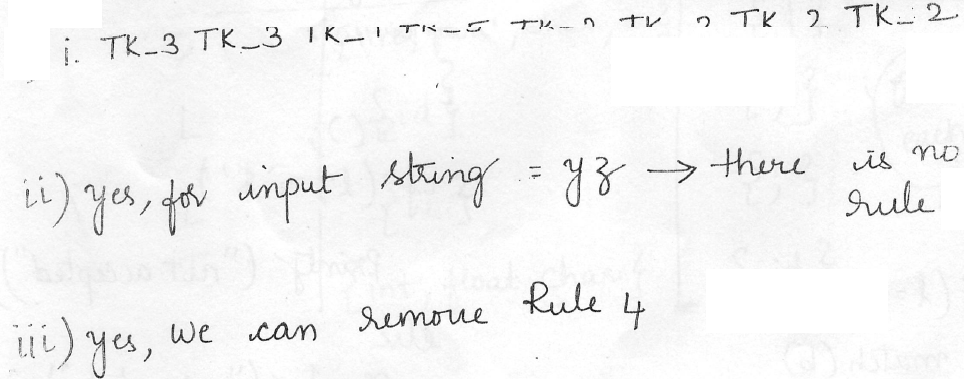 i. TK_3 TK_3 TK_1 TK_5 TK_2 TK_2 TK_2 TK_2
ii) yes, for input string = yz → there is no
rule
iii) yes, we can remove Rule 4